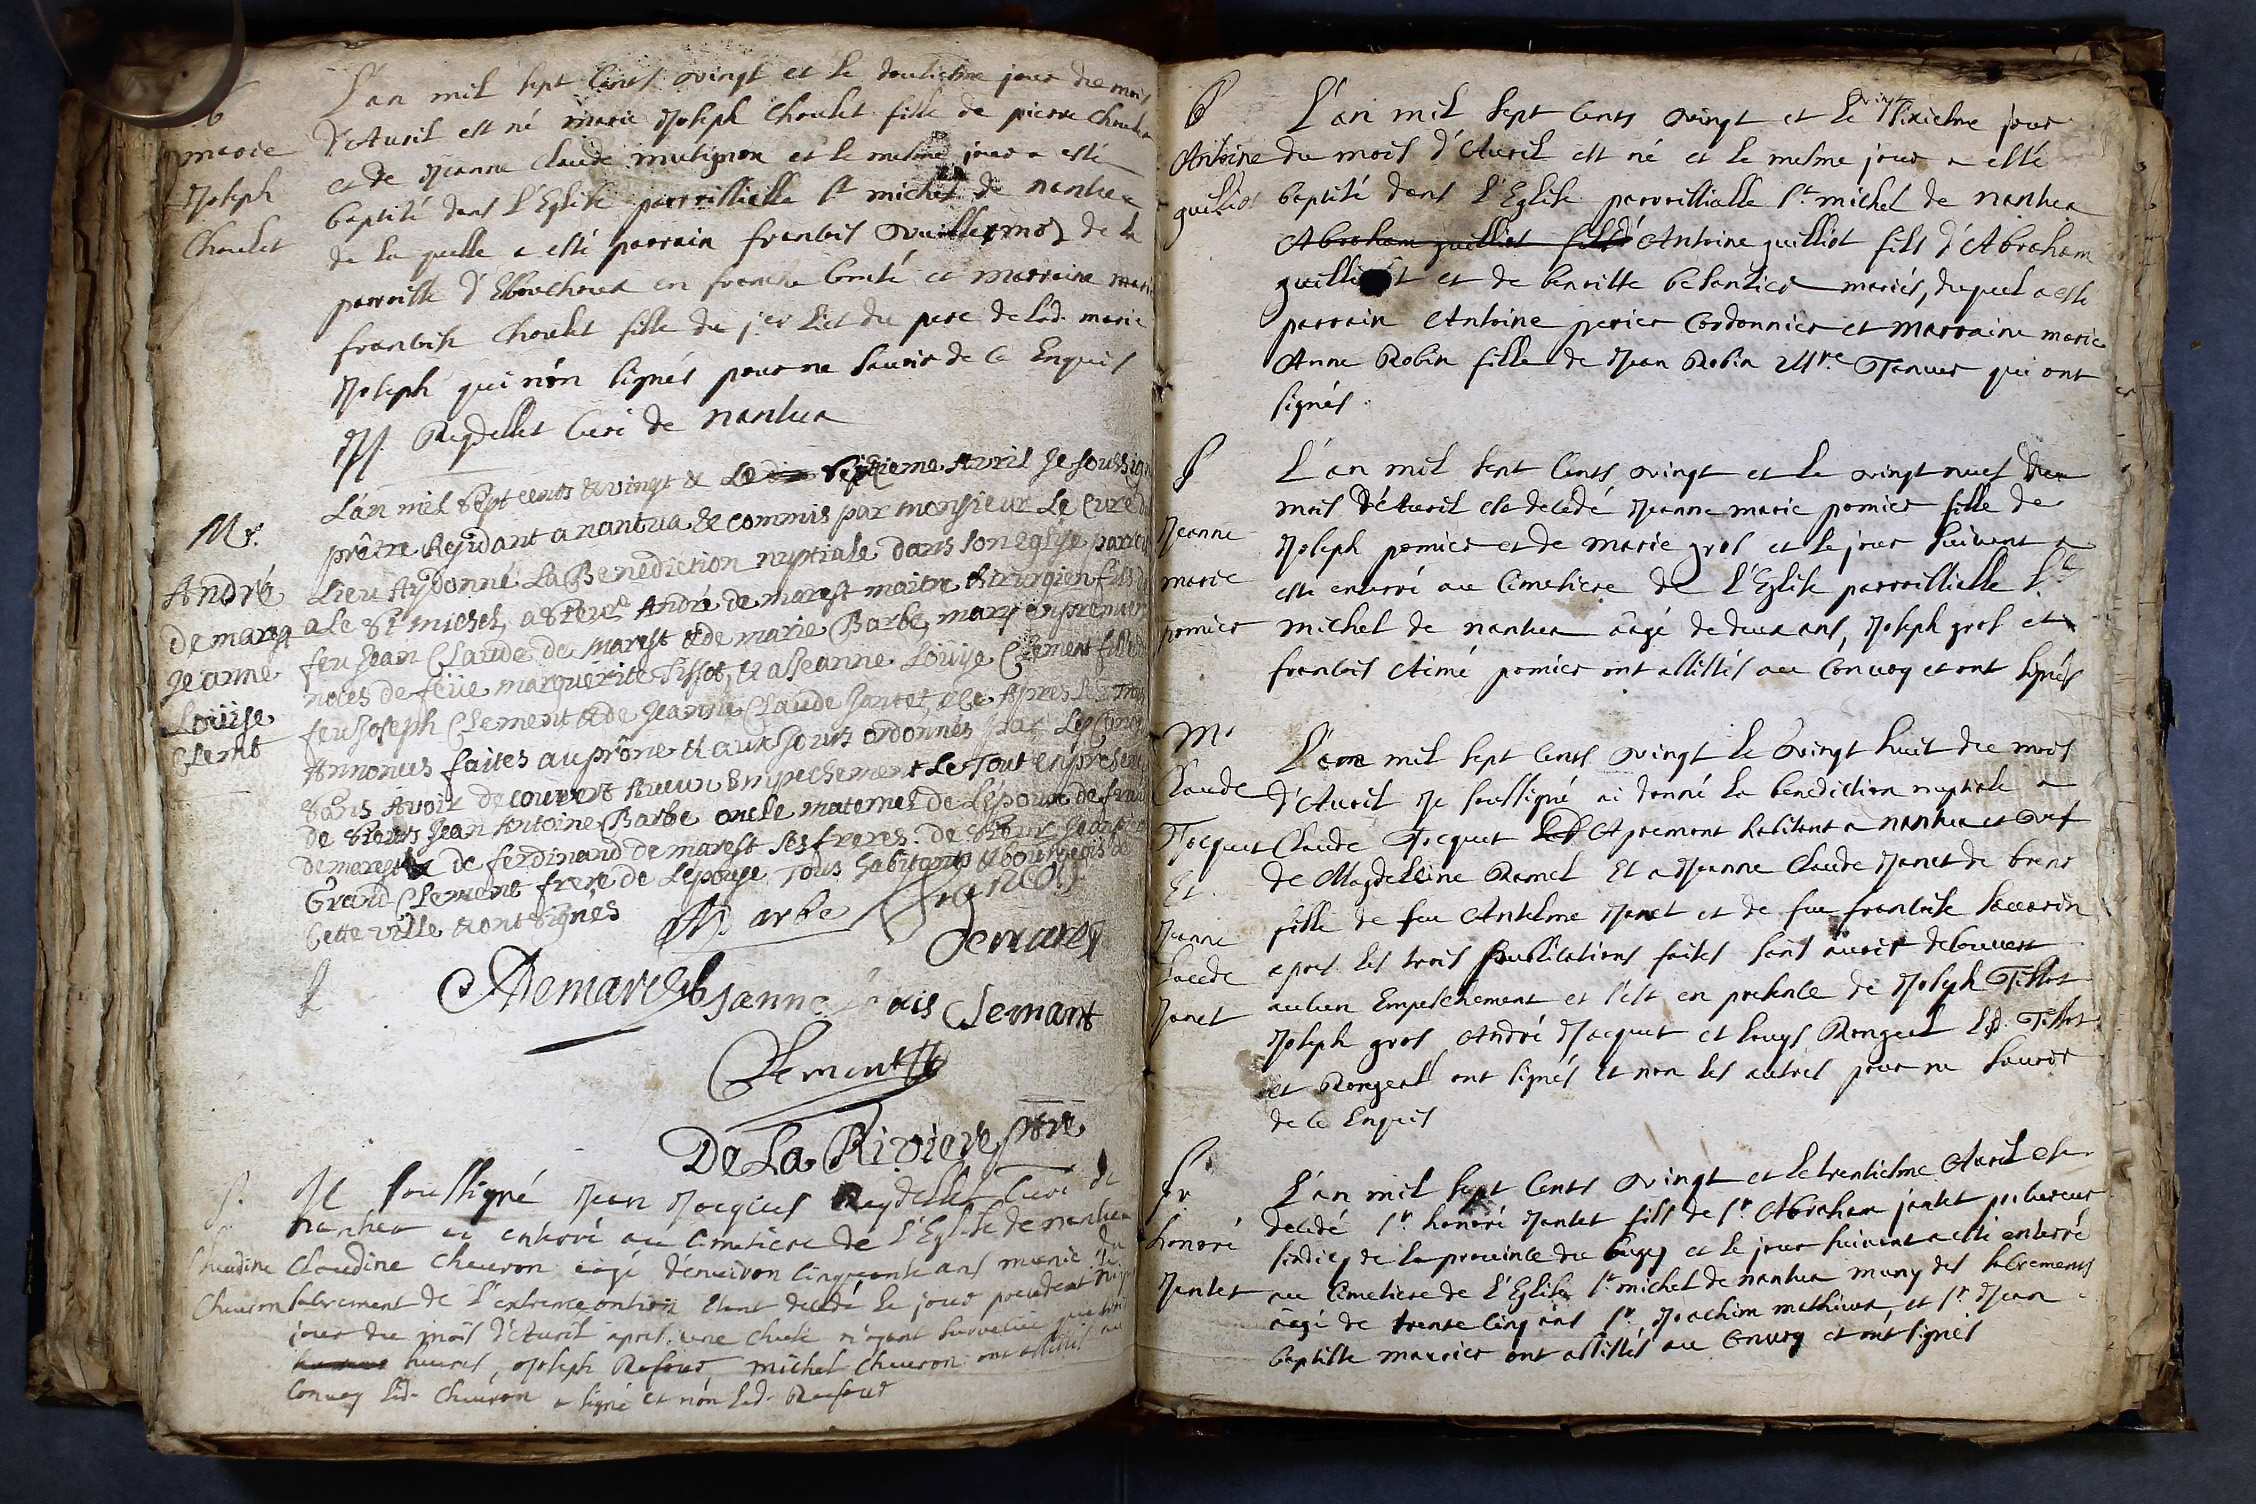 B
marie
Joseph
Choulet
L'an mil sept Cents vingt et le douziesme jour du mois
d'Avril est né marie Joseph Choulet fille de pierre Choulet
et de Jeanne Claude mutignon et le mesme jour a esté
baptisé dans l'Eglise parroissialle st michel de nantua
de la quelle a esté parrain francois vuillermoz de la
parroisse d'Ebouchoux en franche Comté et marraine marie
francoise Choulet fille du jer lict du pere de lad. marie
Joseph qui n'ón signés pour ne scavoir de ce Enquis
JJ. Reydellet Curé de nantua
Mr.
André
De marest
Jeanne
Loüise
Clemt
L'an mil sept cents & vingt & Le septieme Avril Je soussigné
prêtre Residant a nantua & commis par monsieur Le Curé du
Lieu Ay donné La Benediction nuptiale dans son Eglise parroissi
ale st michel, a sieur André de marest maitre chirurgien fils de
feu Jean Claude de marest & de marie Barbe, mary en premieres
noces de feüe marguerite Tissot, & a Jeanne Loüise Clement fille de
feu Joseph Clement & de Jeanne Claude Jantet, & Ce Apres Les Trois
Annonces faites au prône & aux Jours ordonnés par Les Canons
sans Avoir decouvert Aucun Empechement Le Tout en presence
de sieurs Jean Antoine Barbe oncle maternel de L'époux de françois
demarest & de ferdinand de marest ses freres. de sieur Joseph
Grand Clement frere de L'épouse Tous habitants & bourgeois de
Cette ville & ont signés
Barbe
Demarest
ADemarest Janne Louis Clemant
Clement
De La Riviere ptre
S.
Claudine
Chevron
Je soussigné Jean Jacques Reydellet Curé de
nantua ai enterré au Cimetiere de l'Eglise de nantua
Claudine Chevron aagé denviron Cinquante ans munie du
sacrement de l'extreme onction Etant decedé le jour precedent
jour du mois d'Avril apres une chute n'ayant survecüe que
heures, Joseph Refour michel Chevron ont assistés au
Convoy led. Chevron a signé et nón led. Refour
B
Antoine
guilliot
L'an mil sept Cents vingt et le vingt sixiesme jour
du mois d'Avril est né et le mesme jour a esté
baptisé dans l'Eglise parroissialle st. michel de nantua
Abraham guilliot fils d' Antoine guilliot fils d'Abraham
guilliot et de benoitte besantier mariés, duquel a esté
parrain Antoine perier Cordonnier et marraine marie
Anne Robin fille de Jean Robin Mre. Tanneur qui ont
signés
S
Jeanne
marie
pomier
L'an mil sept Cents vingt et le vingt neuf du
mois d'Avril est decedé Jeanne marie pomier fille de
Joseph pomier et de marie gros et le jour suivant a
esté enterré au Cimetiere de l'Eglise parroissialle St.
michel de nantua aagé de deux ans, Joseph gros et
francois Aimé pomier ont assistés au Convoy et ont signés
Mr
Claude
Tocquet
Et
Jeanne
Claude
Janet
L'an mil sept Cents vingt le vingt huit du mois
d'Avril Je soussigné ai donné la benediction nuptiale a
Claude Tocquet d'Apremont habitant a nantua et vef
de Magdeleine Ramel Et a Jeanne Claude Janet de brens
fille de feu Antelme Janet et de feue francoise Saccorin
apres les trois publications faites sans avoir decouvert
aucun Empeschement et c'est en presence de Joseph Tissot
Joseph gros André Jacquet et louys Rongeat led. Tissot
et Rongeat ont signés et non les autres pour ne scavoir
de ce Enquis
S.
Sr.
honoré
Jantet
L'an mil sept Cents vingt et le trentiesme Avril est
decedé Sr. honoré Jantet fils de Sr. Abraham jantet procureur
sindicq de la province du bugey et le jour suivant a esté enterré
au Cimetiere de l'Eglise st. michel de nantua muny des sacrements
aagé de trente Cinq ans Sr. Joachim mathieux, et Sr. Jean
baptiste maurier ont assistés au Convoy et ónt signés